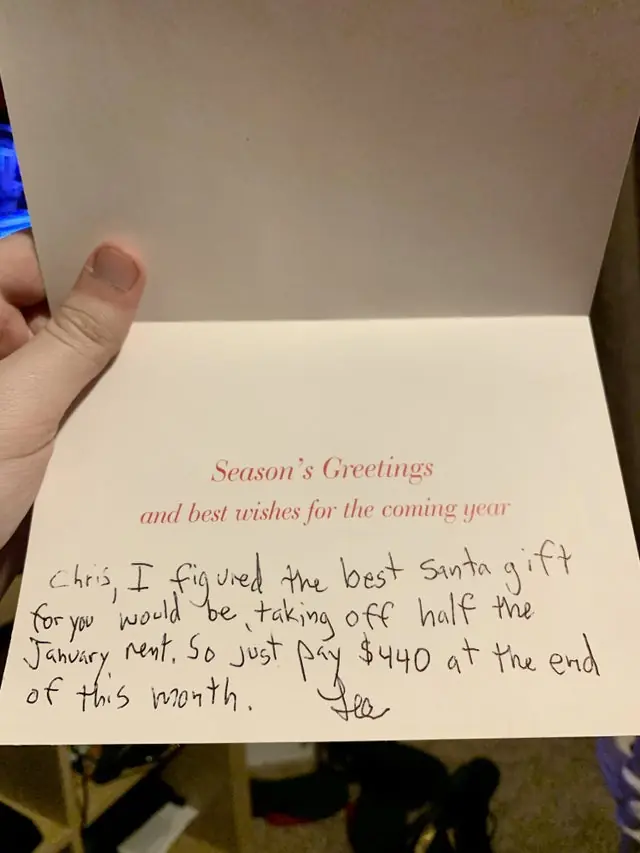 Season's Greetings
and best wishes for the coming year
Chris, I figured the best santa gift
for you would be, taking off half the
January rent. So just pay $440 at the end
of this month.